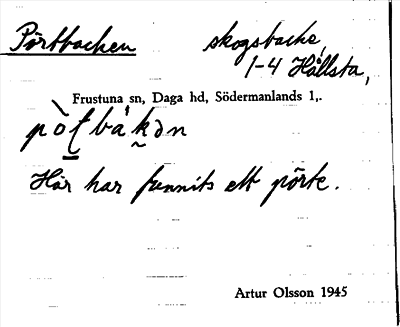 Pörtbacken
skogsbacke,
1-4 Hållsta,
Frustuna sn, Daga hd, Södermanlands l,.
Här har funnits ett pörte.
Artur Olsson 1945